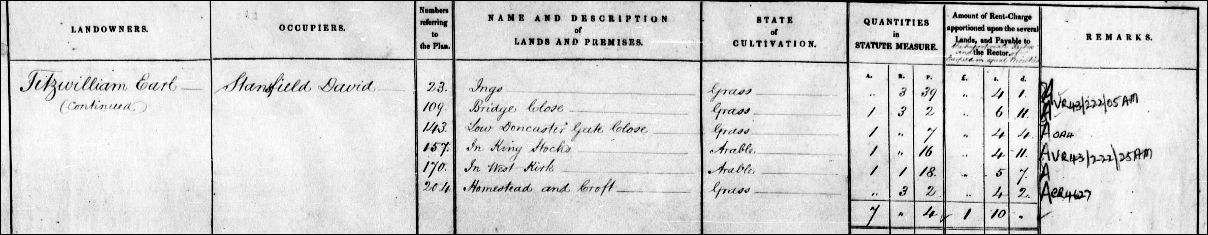 LANDOWNERS. OCCUPIERS. Numbers referring to the Plan. NAME AND DESCRIPTION of LANDS AND PREMISES. STATE of CULTIVATION. QUANTITIES in STATUTE MEASURE. Amount of Rent-Charge apportioned upon the several Lands, and Payable to the Rector. REMARKS.
A. R. P. £. s. d.
Fitzwilliam Earl Stansfield David 23. Ings Grass " 3 39 " 4 1. A
(Continued) 109. Bridge Close Grass 1 3 2 " 6 11. A VR43/222/05AM
143. Low Doncaster Gate Close Grass 1 " 7 " 4 4. A OA4
157. In King Stocks Arable 1 " 16 " 4 11. A VR43/222/25AM
170. In West Kirk Arable 1 1 18. " 5 7. A
204. Homestead and Croft Grass " 3 2 " 4 2. A CR4627
7 " 4 1 10 "